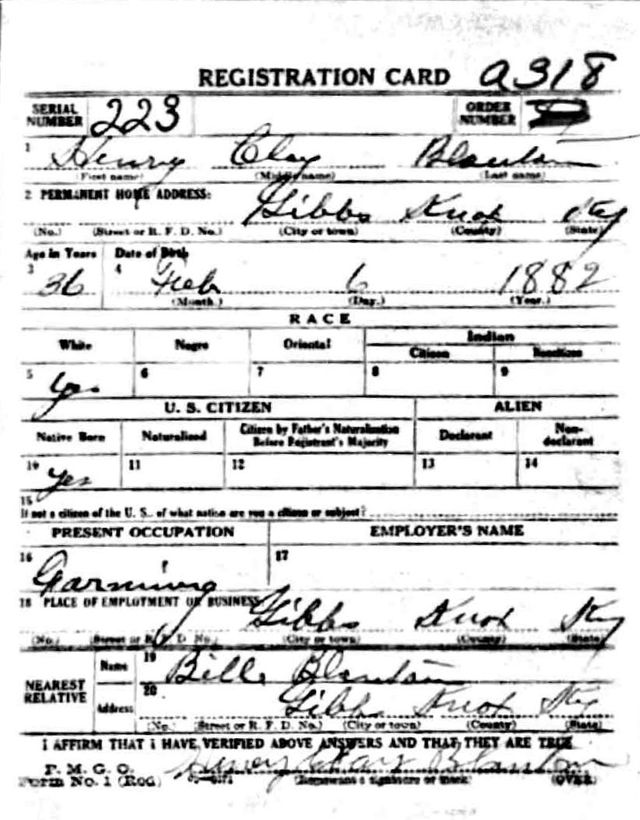 REGISTRATION CARD A318
SERIAL NUMBER 223 ORDER NUMBER
1 Henry Clay Blanton
(First name) (Middle name) (Last name)
2 PERMANENT HOME ADDRESS:
Gibbs Knox Ky
(No.) (Street or R. F. D. No.) (City or town) (County) (State)
Age in Years Date of Birth
3 36 4 Feb 6 1882
(Month.) (Day.) (Year.)
RACE
White Negro Oriental Indian
Citizen Noncitizen
5 Yes 6 7 8 9
U. S. CITIZEN ALIEN
Native Born Naturalized Citizen by Father's Naturalization Before Registrant's Majority Declarant Non-declarant
10 Yes 11 12 13 14
15
If not a citizen of the U. S., of what nation are you a citizen or subject?
PRESENT OCCUPATION EMPLOYER'S NAME
16 Farming 17
18 PLACE OF EMPLOYMENT OR BUSINESS:
Gibbs Knox Ky
(No.) (Street or R. F. D. No.) (City or town) (County) (State)
NEAREST RELATIVE Name 19 Blanton
Address 20 Gibbs Knox Ky
(No.) (Street or R. F. D. No.) (City or town) (County) (State)
I AFFIRM THAT I HAVE VERIFIED ABOVE ANSWERS AND THAT THEY ARE TRUE
P. M. G. O.
Form No. 1 (Red) Henry Clay Blanton
(Registrant's signature or mark) (OVER)